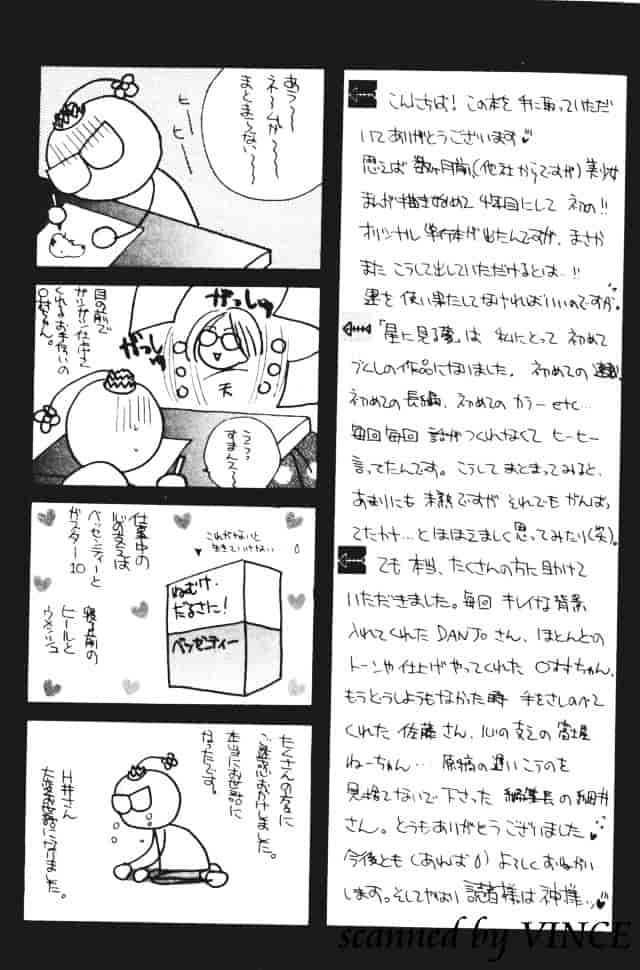 こんにちは！この本を手に取っていただ
いてありがとうございます♥
思えば数ヶ月前(他社からですが)美少女
まんが描き始めて4年目にして初の!!
オリジナル単行本が出たんですが、まさか
またこうして出していただけるとは…!!
運を使い果たしてなければいいのですが。
「昼に見る夢」は私にとって初めて
づくしの作品になりました。初めての連載、
初めての長編、初めてのカラーetc…
毎回毎回話がつくれなくてヒーヒー
言ってたんです。こうしてまとまってみると、
あまりにも未熟ですがそれでもがんばっ
てたわナ…とほほえましく思ってみたり(笑)。
でも本当、たくさんの方に助けて
いただきました。毎回キレイな背景
入れてくれたDANJOさん、ほとんどの
トーンや仕上げやってくれた○村ちゃん、
もうどうしようもなかった時手をさしのべて
くれた佐藤さん、心の支えの富士屋
ねーちゃん…原稿の遅いこのを
見捨てないで下さった編集長の細井
さん。どうもありがとうございました
今後とも(あれば)よろしくおねがい
します。そしてやはり読者様は神様ッ♥
あう〜〜
ネームが〜
まとまらない〜〜〜
ヒー
ヒー
目の前で
ガンガンたすけて
くれるお手伝いの
○村ちゃん。
がっしゅ
がっしゅ
天
ううっ
すまんス〜
仕事中の
心の支えは
ベッセンティーと
ガスター10
寝る前の
ビールと
ウメッシュ
これがないと
生きていけない
ねむけ・
だるさに！
ベッセンティー
たくさんの方に
ご迷惑おかけしました。
本当にお世話に
なったです。
H井さん
大変お世話になりました。
scanned by VINCE